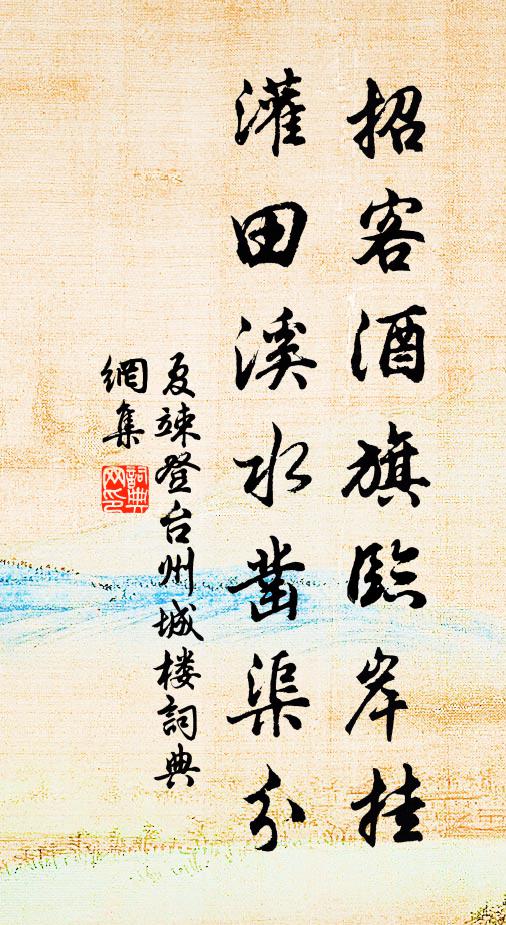 招客酒旗臨岸挂
灌田溪水凿渠分
夏竦登台州城楼詞典
網集
詞典网印